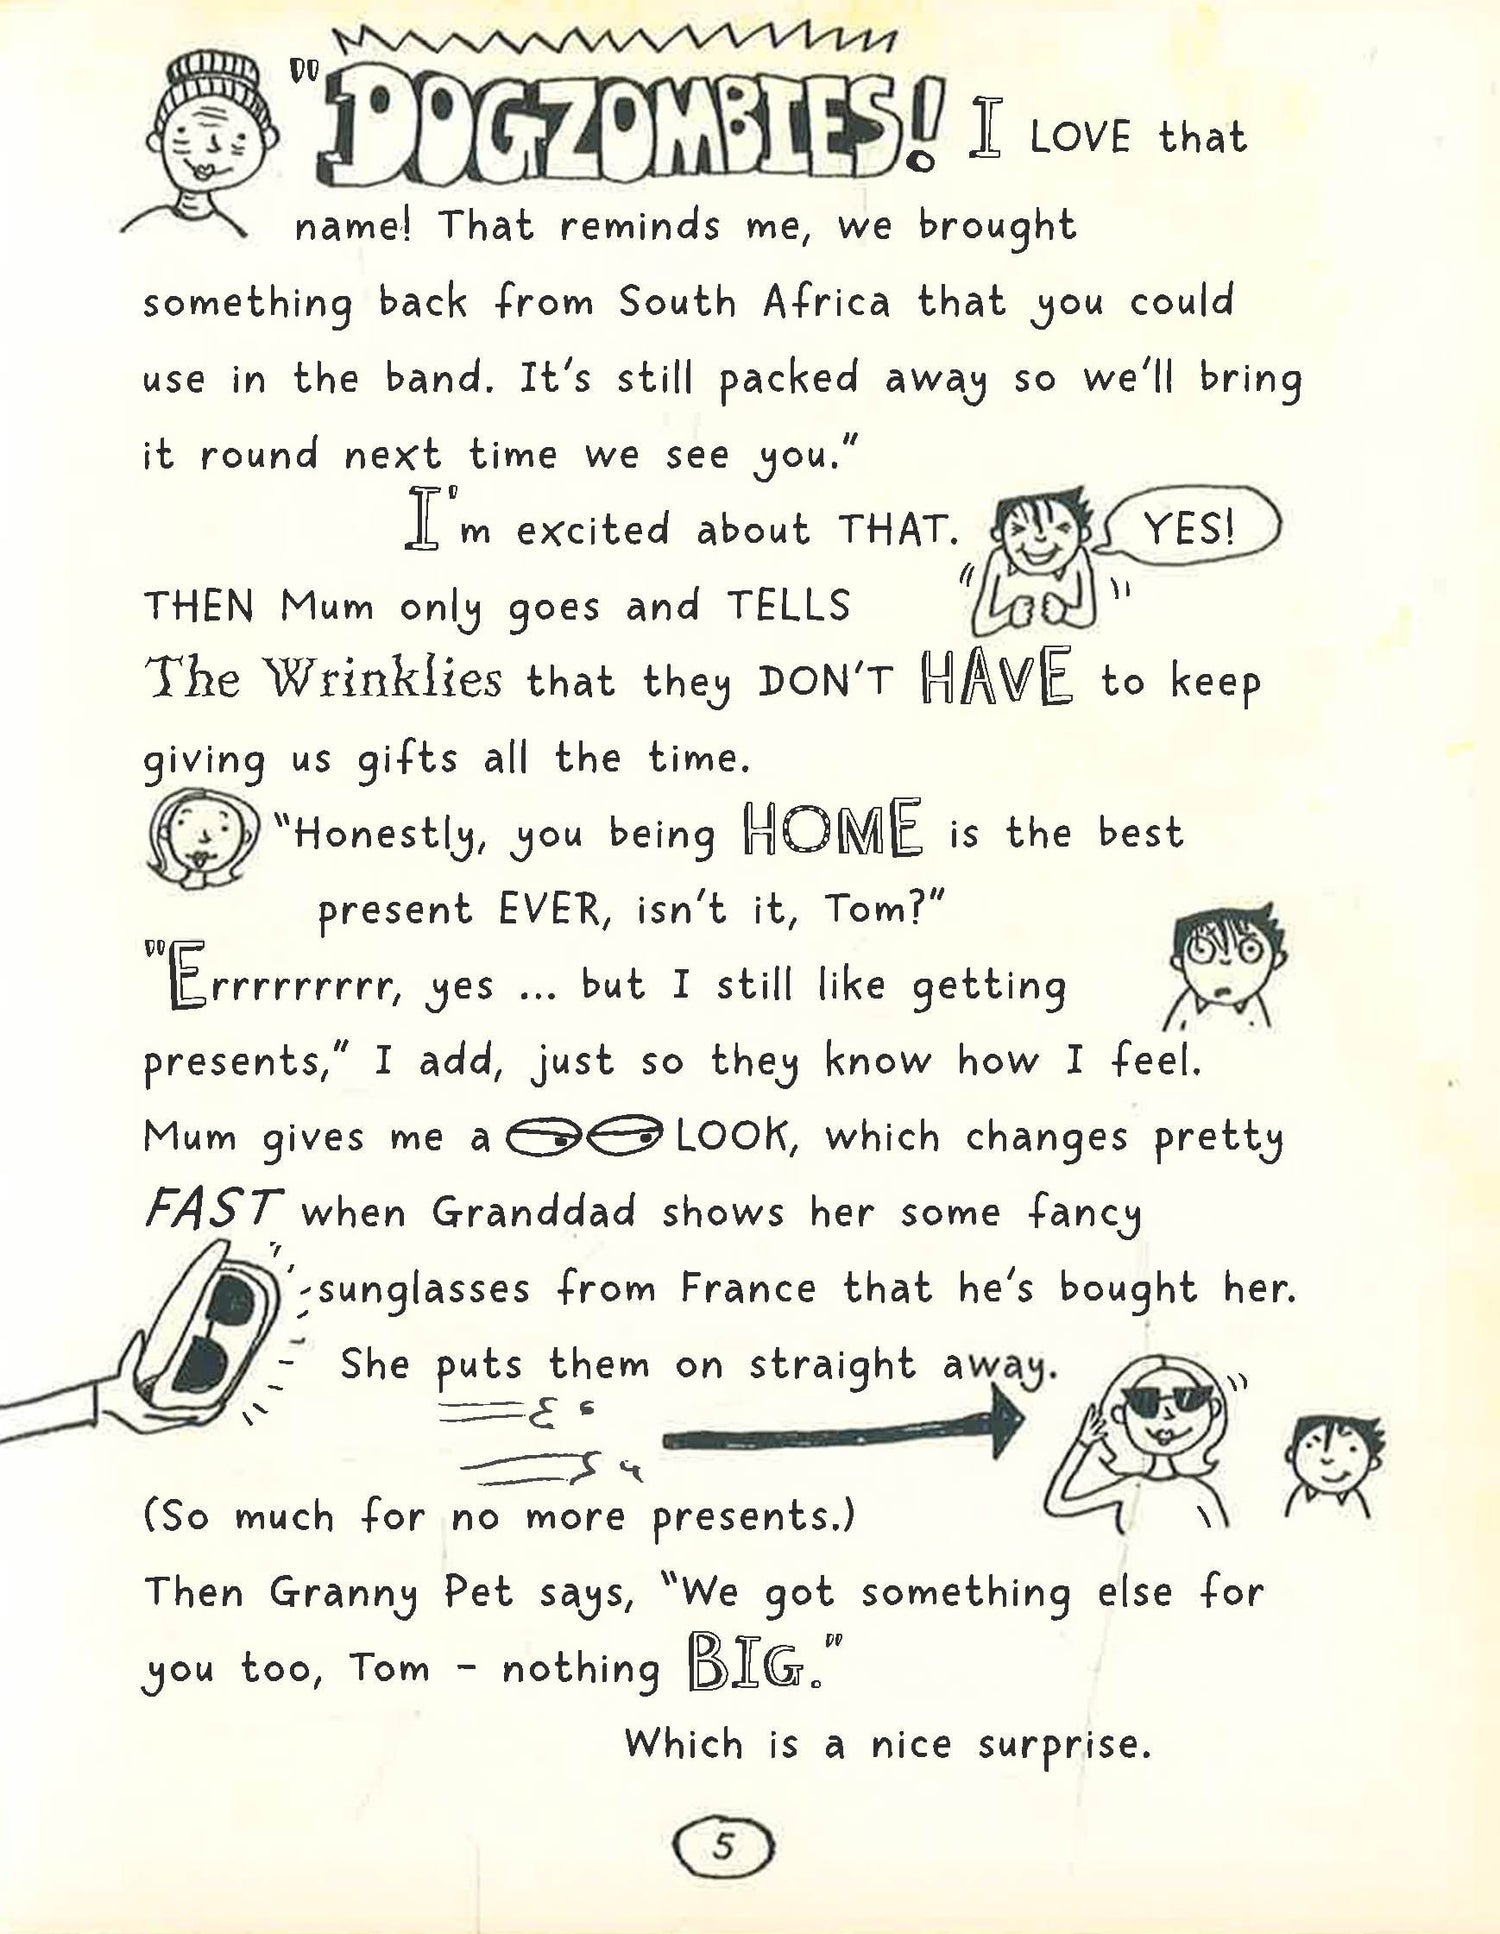 "DOGZOMBIES! I LOVE that
name! That reminds me, we brought
something back from South Africa that you could
use in the band. It's still packed away so we'll bring
it round next time we see you."
I'm excited about THAT.
YES!
THEN Mum only goes and TELLS
The Wrinklies that they DON'T HAVE to keep
giving us gifts all the time.
"Honestly, you being HOME is the best
present EVER, isn't it, Tom?"
"Errrrrrrrr, yes ... but I still like getting
presents," I add, just so they know how I feel.
Mum gives me a LOOK, which changes pretty
FAST when Granddad shows her some fancy
sunglasses from France that he's bought her.
She puts them on straight away.
(So much for no more presents.)
Then Granny Pet says, "We got something else for
you too, Tom – nothing BIG."
Which is a nice surprise.
5